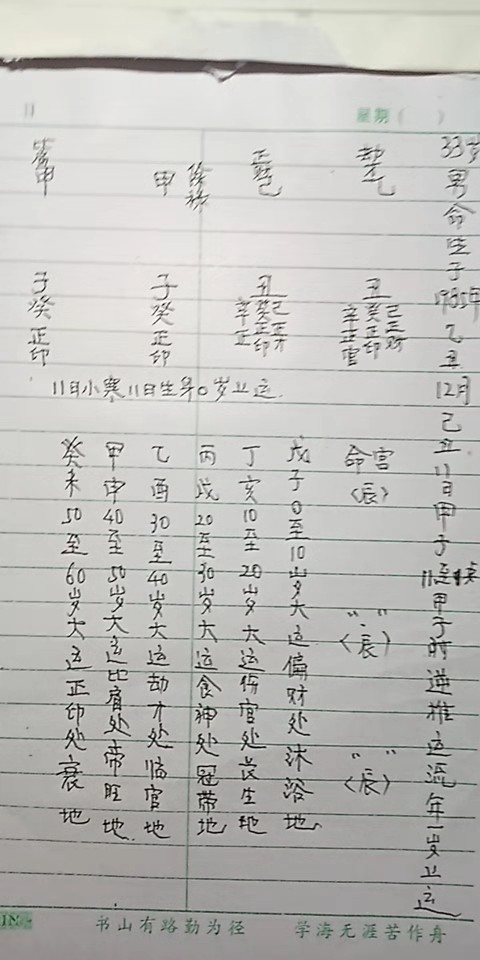 星期（ ）
33岁男命生于1985年乙丑12月己丑11日甲子11至1点甲子时逆推运流年一岁上运
劫才乙
正财己
甲
甲
丑
己正财
癸正印
辛正官
丑
己正才
癸正印
辛正
子癸正印
子癸正印
11日小寒11日生算0岁上运.
命宫〈辰〉
〃〃〈辰〉
〃〃〈辰〉
戊子0至10岁大运偏财处沐浴地
丁亥10至20岁大运伤官处长生地
丙戌20至30岁大运食神处冠带地
乙酉30至40岁大运劫才处临官地
甲申40至50岁大运比肩处帝旺地
癸未50至60岁大运正印处衰地
书山有路勤为径
学海无涯苦作舟